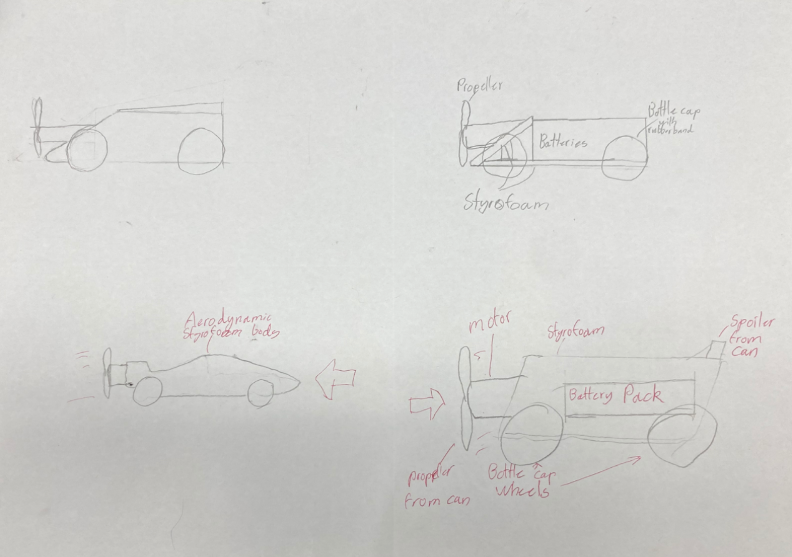 Propeller
Bottle cap
with
rubberband
Batteries
Styrofoam
Aerodynamic
Styrofoam body
motor
Styrofoam
Spoiler
from
can
Battery Pack
propeller
from can
Bottle cap
wheels